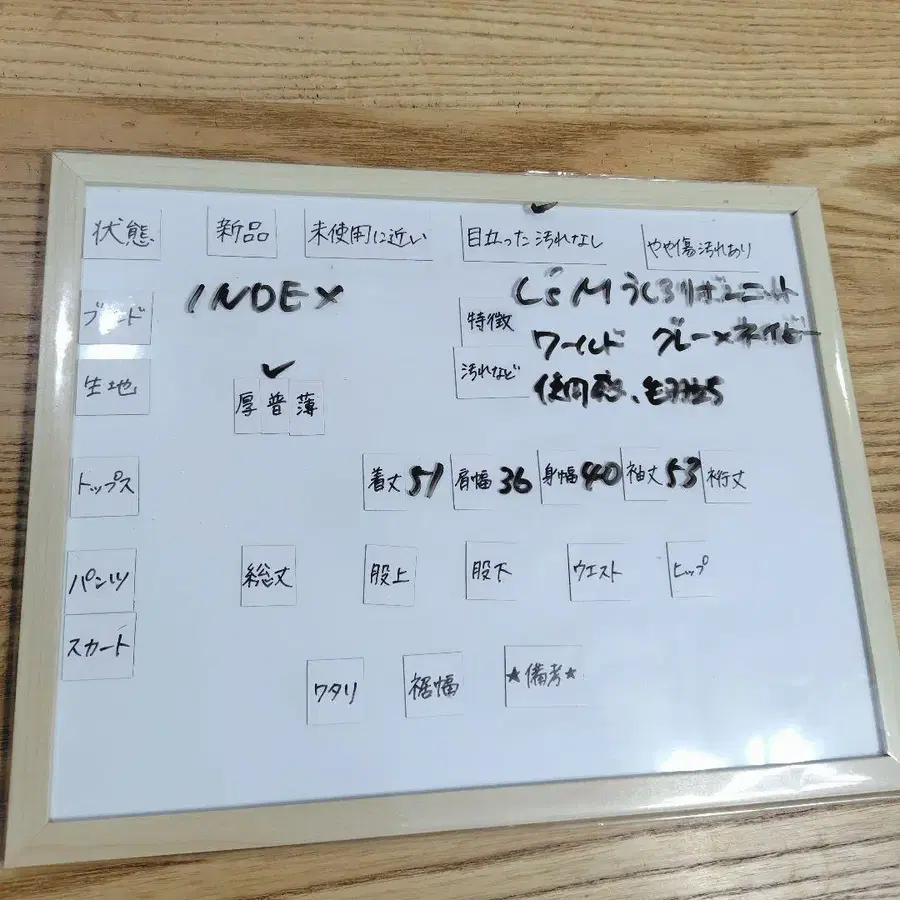 状態 新品 未使用に近い 目立った汚れなし やや傷汚れあり
ブランド INDEX 特徴 L'S M うしろリボンニット
ワールド グレー×ネイビー
生地 厚 普 薄 汚れなど 使用感、
トップス 着丈 51 肩幅 36 身幅 40 袖丈 53 裄丈
パンツ 総丈 股上 股下 ウエスト ヒップ
スカート
ワタリ 裾幅 ★備考★